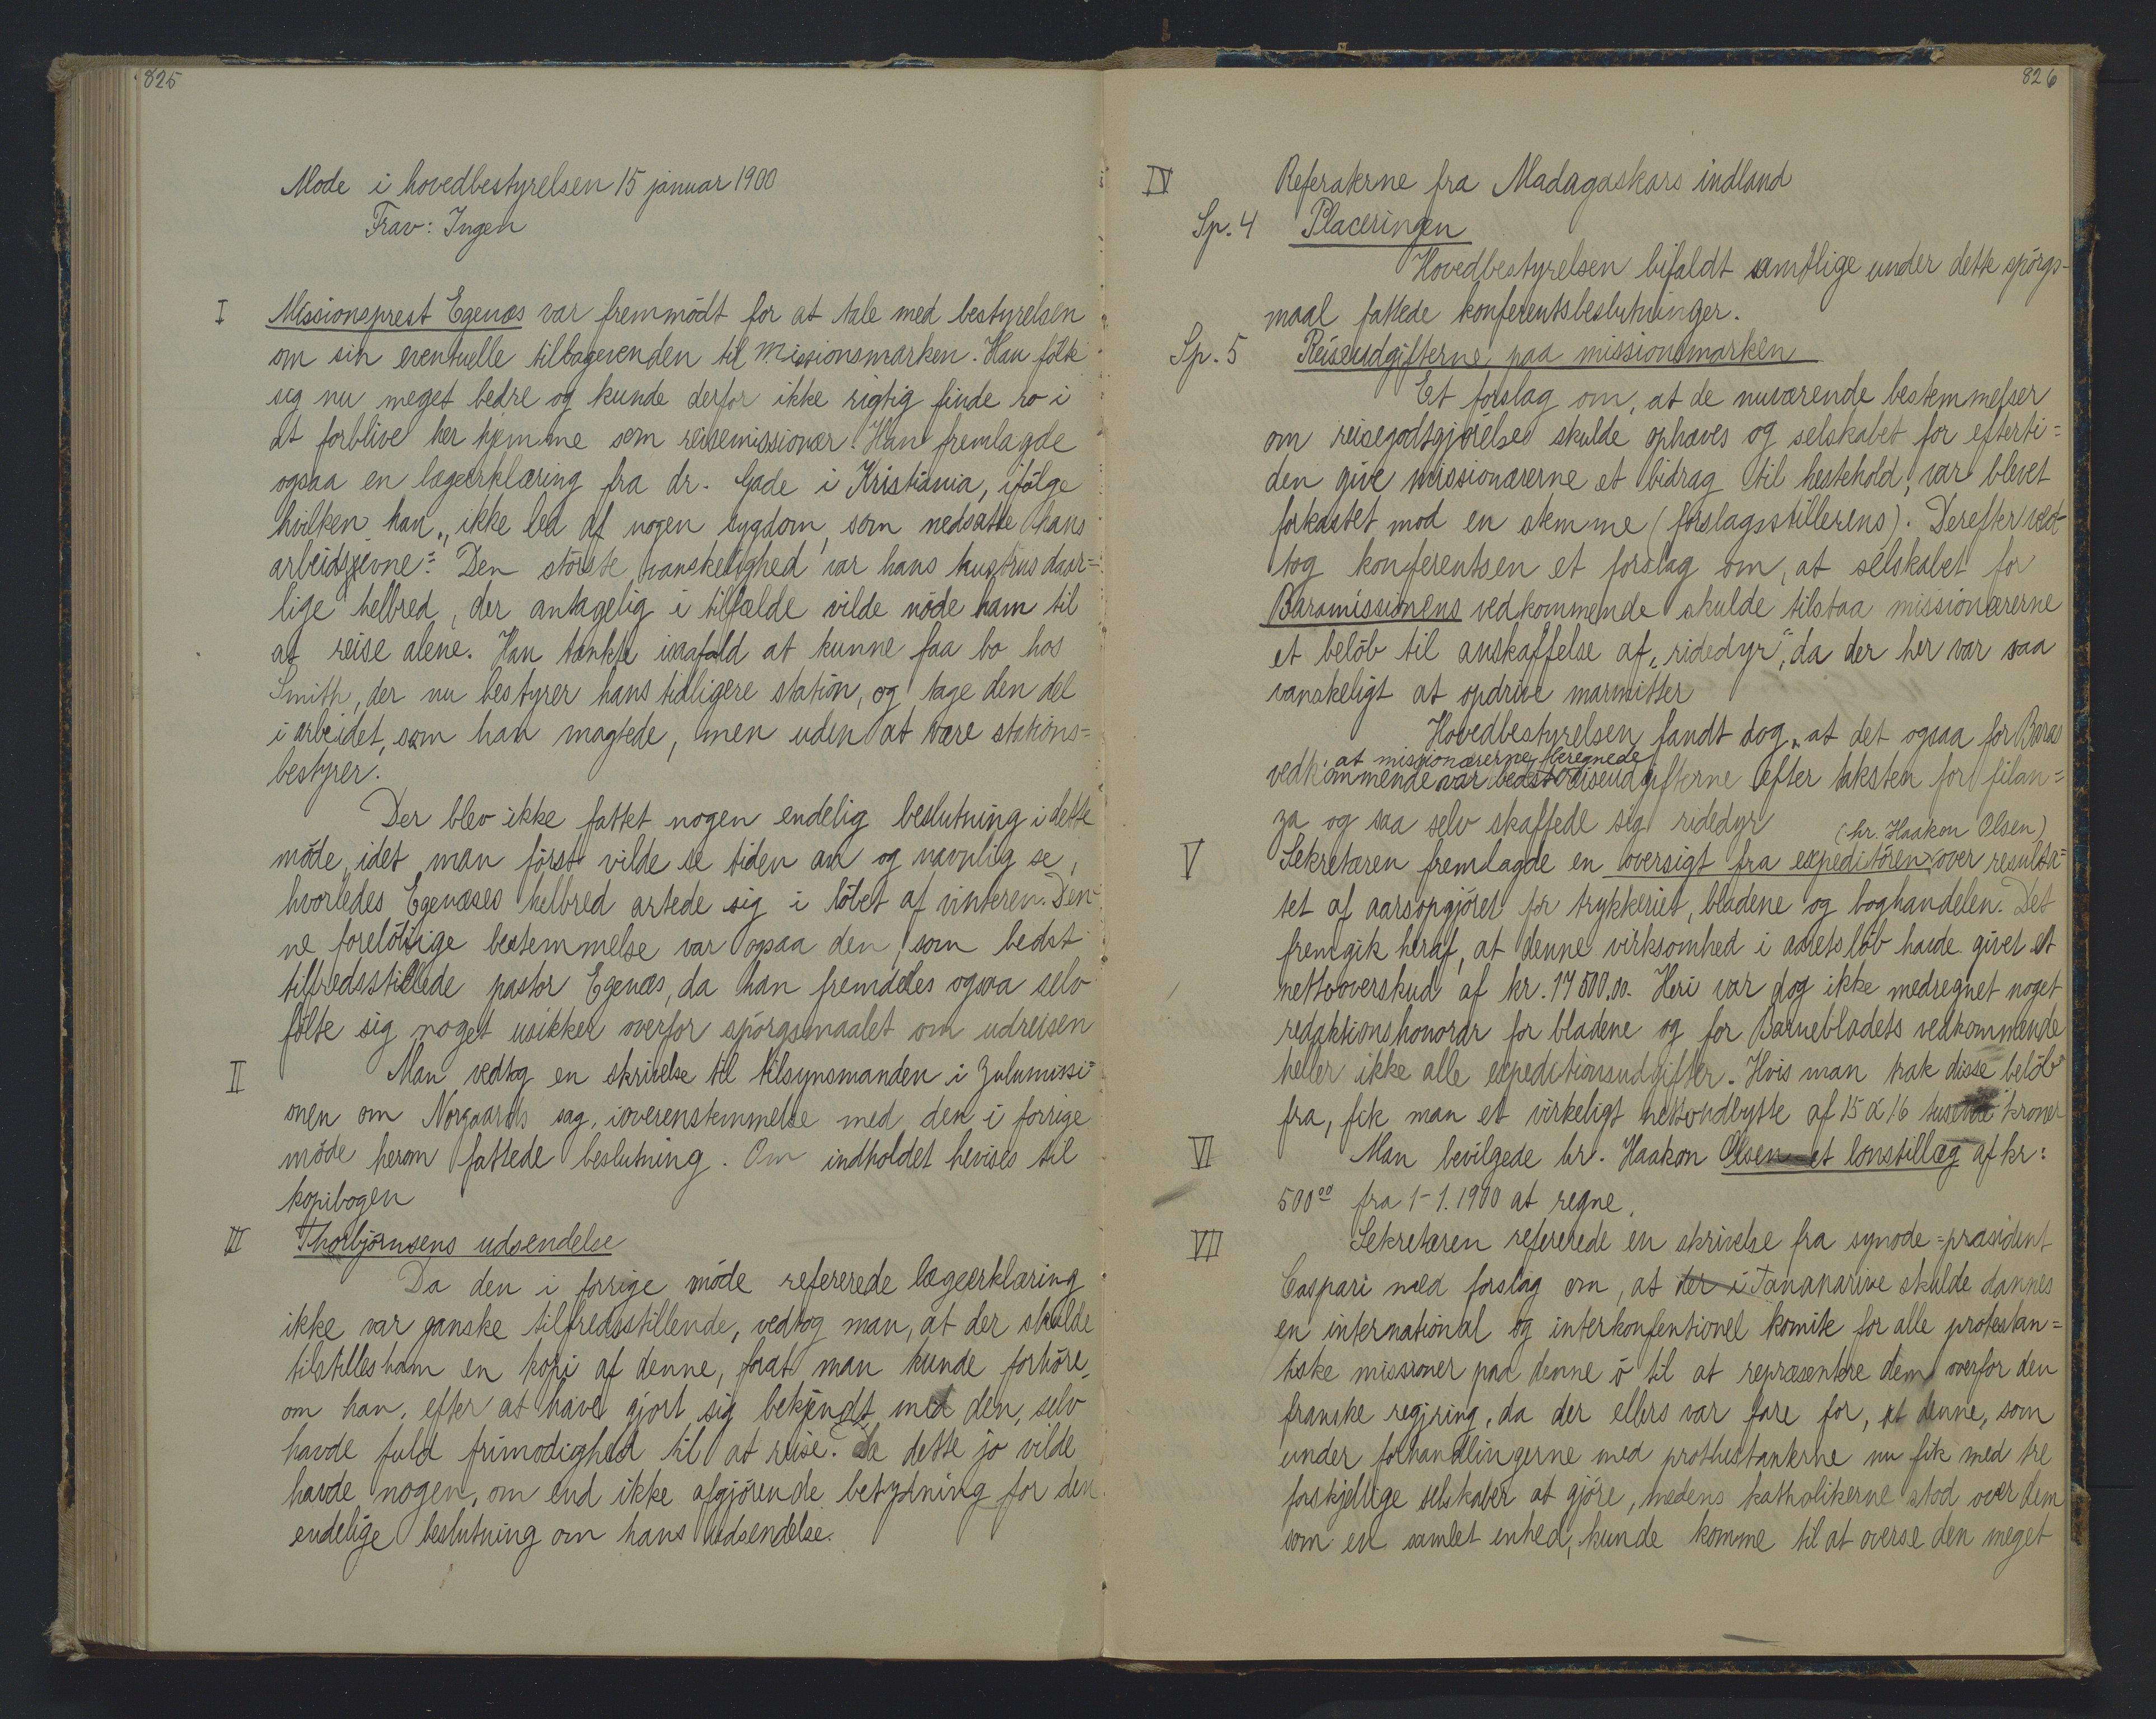 825
Møde i hovedbestyrelsen 15 januar 1900
Frav: Ingen
I Missionsprest Egenæs var fremmödt for at tale med bestyrelsen
om sin eventuelle tilbagevenden til Missionsmarken. Han fölte
sig nu meget bedre og kunde derfor ikke rigtig finde ro i
at forblive her hjemme som reisemissionær. Han fremlagde
ogsaa en lægeerklæring fra dr. Gade i Kristiania, ifölge
hvilken han „ikke led af nogen sygdom, som nedsatte hans
arbeidsevne“. Den störste vanskelighed var hans hustrus daar=
lige helbred, der antagelig i tilfælde vilde nöde ham til
at reise alene. Han tænkte isaafald at kunne faa bo hos
Smith, der nu bestyrer hans tidligere station, og tage den del
i arbeidet, som han magtede, men uden at være stations=
bestyrer.
Der blev ikke fattet nogen endelig beslutning i dette
möde, idet man först vilde se tiden an og navnlig se,
hvorledes Egenæses helbred artede sig i löbet af vinteren. Den-
ne forelöbige bestemmelse var ogsaa den, som bedst
tilfredsstillede pastor Egenæs, da han fremdeles ogsaa selv
fölte sig noget usikker overfor spörgsmaalet om udreisen
II Man vedtog en skrivelse til tilsynsmanden i Zulumissi=
onen om Norgaards sag, ioverenstemmelse med den i forrige
möde herom fattede beslutning. Om indholdet hevises til
kopibogen
III Thorbjörnsens udsendelse
Da den i forrige möde refererede lægeerklæring
ikke var ganske tilfredsstillende, vedtog man, at der skulde
tilstilles ham en kopi af denne, forat man kunde forhöre,
om han, efter at have gjort sig bekjendt med den, selv
havde fuld frimodighed til at reise. Da dette jo vilde
havde nogen, om end ikke afgjörende betydning for den
endelige beslutning om hans udsendelse.
826
IV Referaterne fra Madagaskars indland
Sp. 4 Placeringen
Hovedbestyrelsen bifaldt samtlige under dette spörgs-
maal fattede konferentsbeslutninger.
Sp. 5 Reiseudgifterne paa missionsmarken
Et forslag om, at de nuværende bestemmelser
om reisegodtgjörelse skulde ophæves og selskabet for efterti=
den give missionærerne et bidrag til hestehold, var blevet
forkastet mod en stemme (forslagsstillerens). Derefter ved-
tog konferentsen et forslag om, at selskabet for
Baramissionens vedkommende skulde tilstaa missionærerne
et belöb til anskaffelse af „ridedyr“, da der her var saa
vanskeligt at opdrive marmitter
Hovedbestyrelsen fandt dog, at det ogsaa for Baras
at missionærerne beregnede
vedkommende var bedst reiseudgifterne efter taksten for filan=
za og saa selv skaffede sig ridedyr
(hr. Haakon Olsen)
V Sekretæren fremlagde en oversigt fra expeditören over resulta=
tet af aarsopgjöret for trykkeriet, bladene og boghandelen. Det
fremgik heraf, at denne virksomhed i aarets löb havde givet et
nettooverskud af kr. 17500.00. Heri var dog ikke medregnet noget
redaktionshonorar for bladene og for Barnebladets vedkommende
heller ikke alle expeditionsudgifter. Hvis man trak disse belöb
fra, fik man et virkeligt nettoudbytte af 15 à 16 tusende kroner
VI Man bevilgede hr. Haakon Olsen et lonstillæg af kr:
500⁰⁰ fra 1-1.1900 at regne.
VII Sekretæren refererede en skrivelse fra synode=præsident
Caspari med forslag om, at der i Tananarive skulde dannes
en international og interkonfentionel komite for alle protestan=
tiske missioner paa denne ö til at repræsentere dem overfor den
franske regjring, da der ellers var fare for, at denne, som
under forhandlingerne med prothestanterne nu fik med tre
forskjellige selskaber at gjöre, medens katholikerne stod over dem
som en samlet enhed, kunde komme til at overse den meget